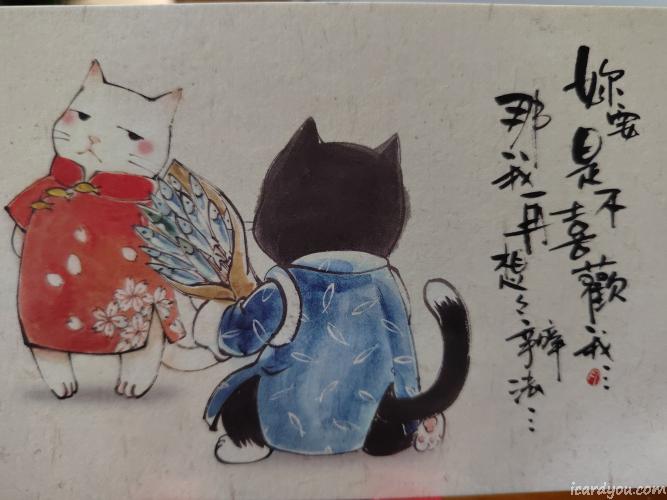 妳要是不喜歡我…
那我再想想辦法…
icardyou.com